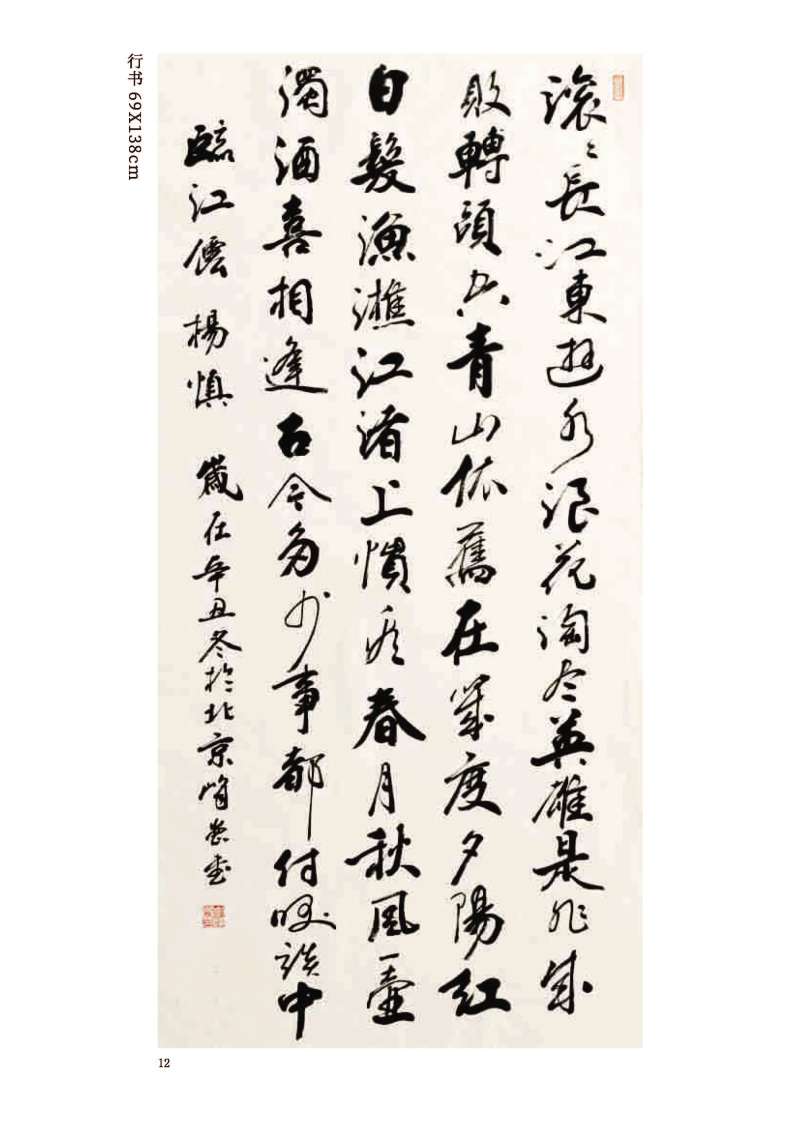 滾〻長江東逝水浪花淘尽英雄是非成
敗轉頭空青山依舊在幾度夕陽紅
白髮漁潐江渚上慣看春月秋風一壺
濁酒喜相逢古今多少事都付咲談中
臨江僊 楊慎 歲在辛丑冬於北京
行书 69X138cm
12